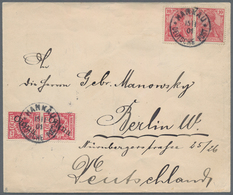 HANKAU
An
die Herren Gebr. Manowsky
HANKAU
Berlin W.
Nürnbergerstrasse 25/26
Deutschland